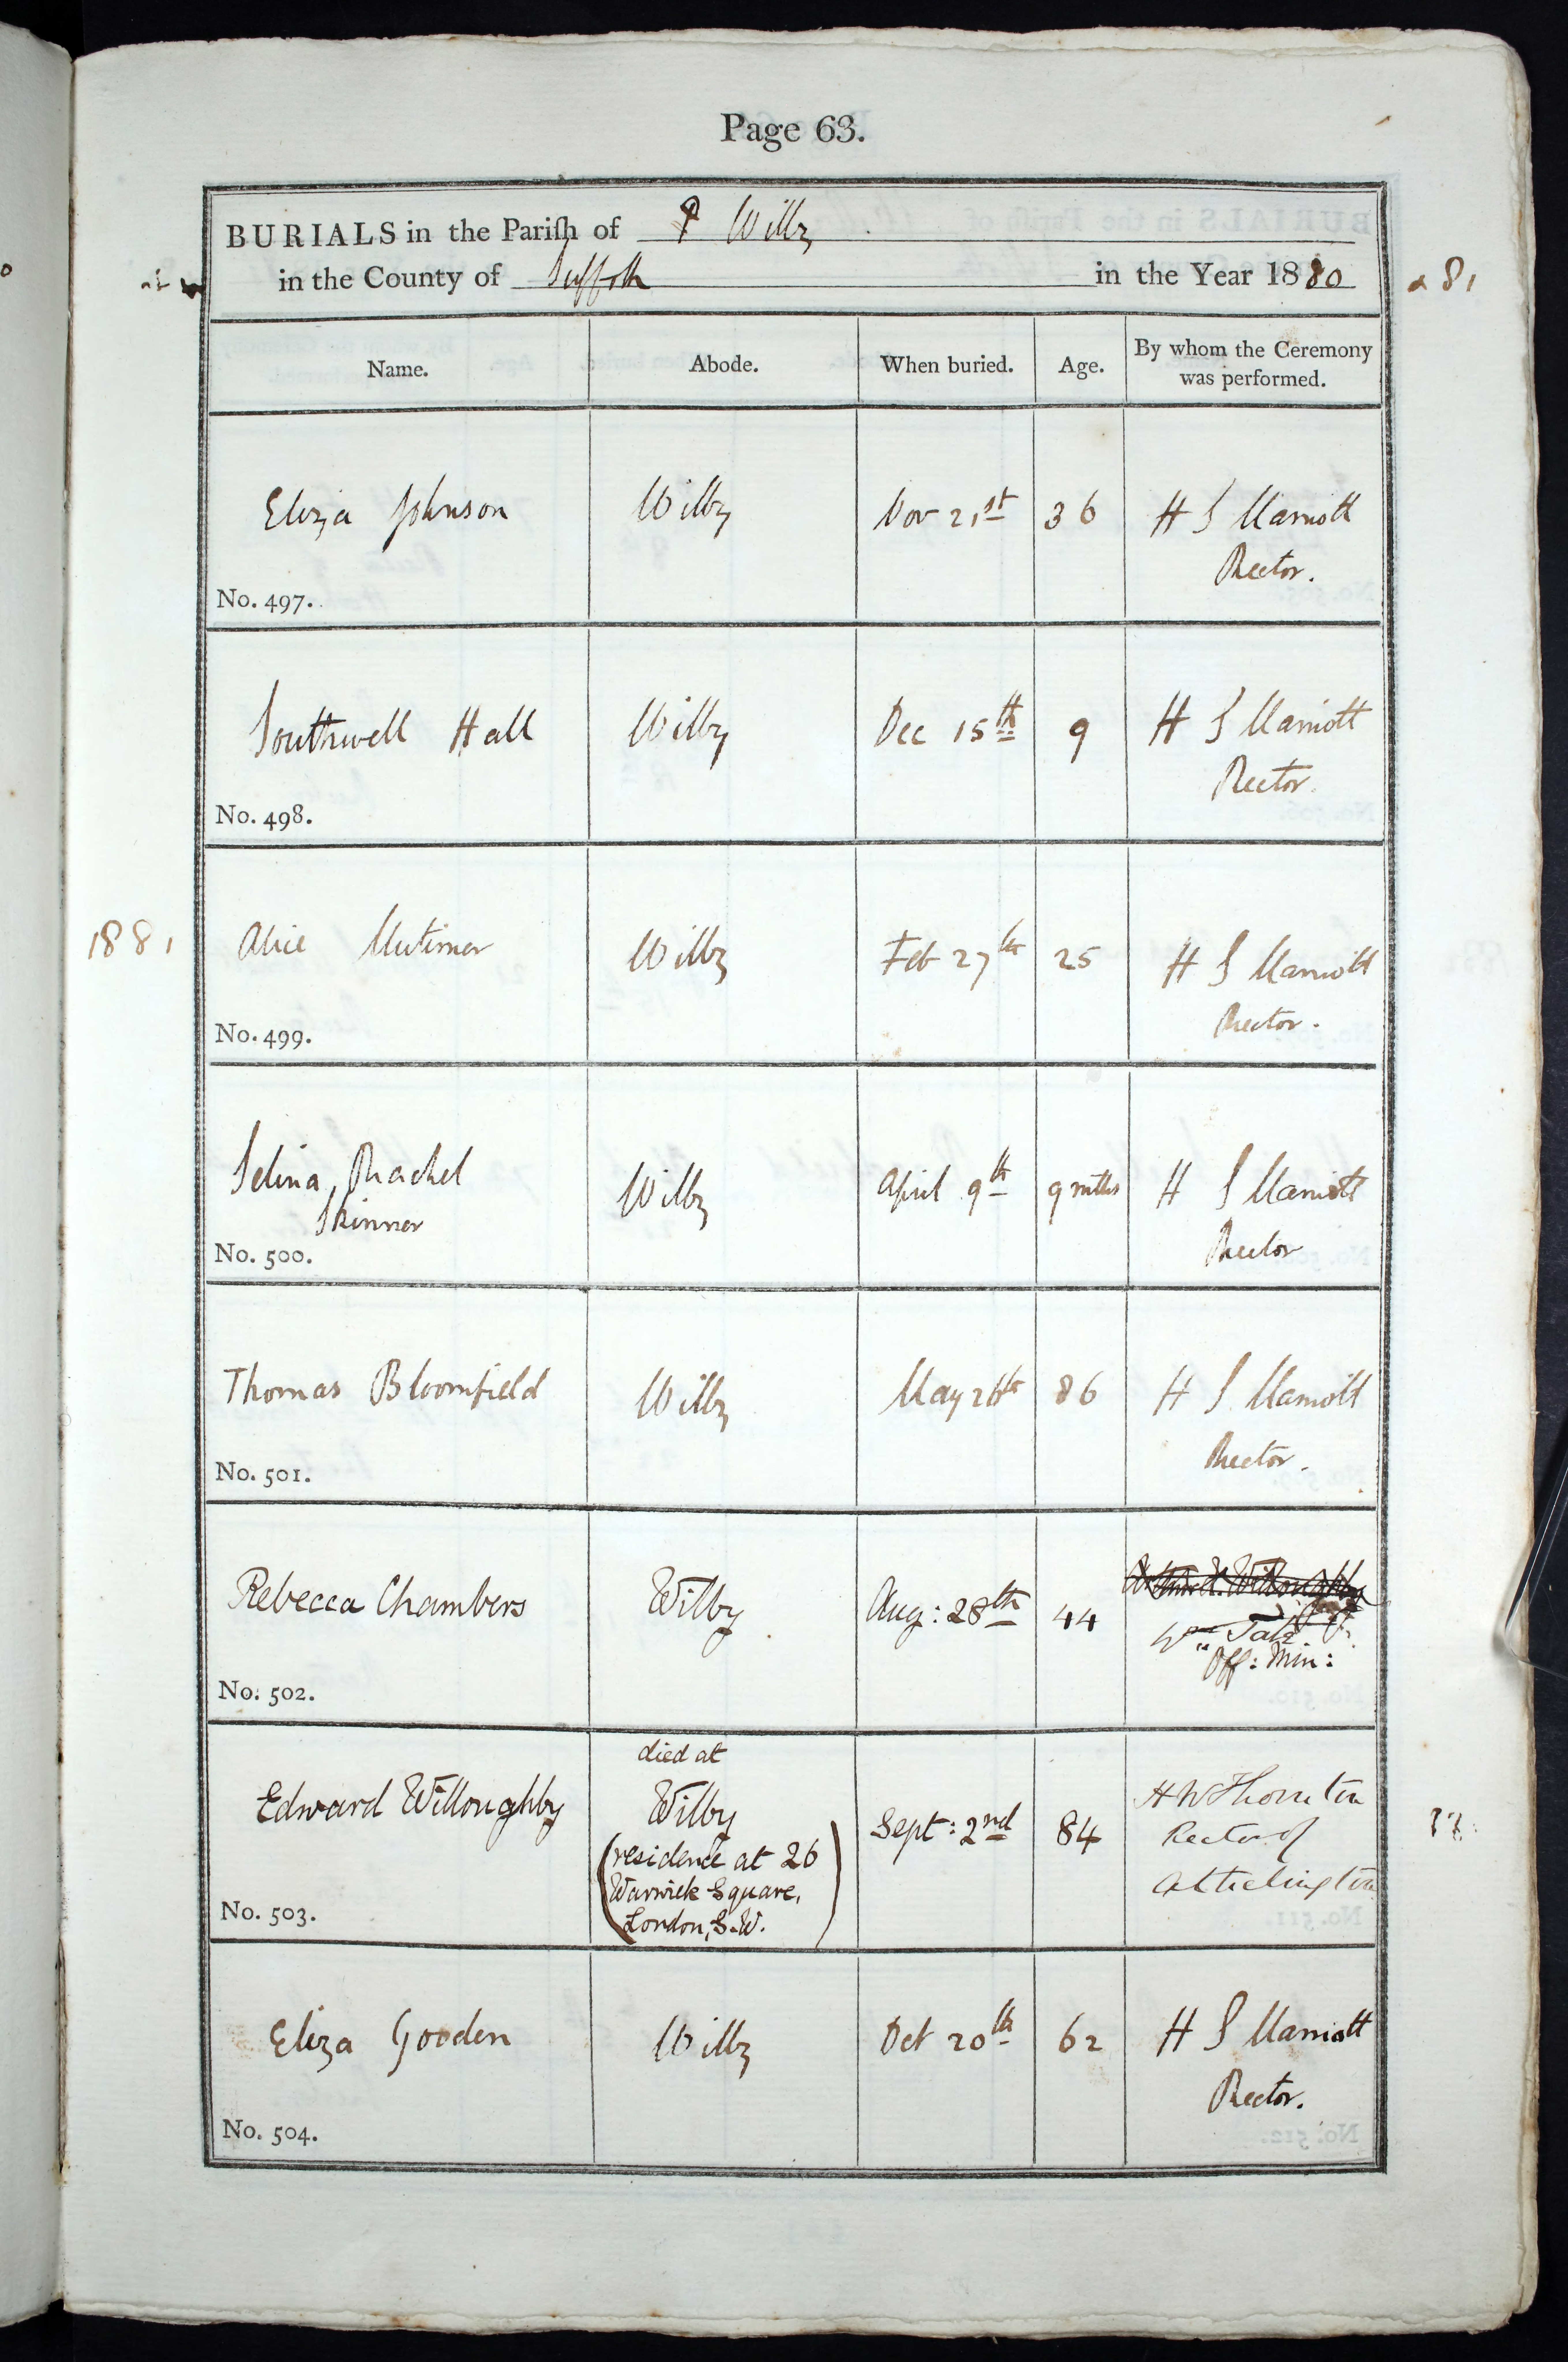 Page 63.
BURIALS in the Parish of Wilby
in the County of Suffolk in the Year 1880 & 81
Name. Abode. When buried. Age. By whom the Ceremony was performed.
Eliza Johnson Wilby Nov 21st 36 H S Marriott
Rector.
No. 497.
Southwell Hall Wilby Dec 15th 9 H S Marriott
Rector.
No. 498.
1881 Alice Mutimer Wilby Feb 27th 25 H S Marriott
Rector.
No. 499.
Selina Rachel Wilby April 9th 9 mths H S Marriott
Skinner Rector
No. 500.
Thomas Bloomfield Wilby May 26th 86 H S Marriott
Rector.
No. 501.
Rebecca Chambers Wilby Aug: 28th 44
Wm
Off: Min:
No. 502.
died at
Edward Willoughby Wilby Sept: 2nd 84 H W Thornton
(residence at 26 Rector of
Warwick Square,
London, S.W.)
No. 503.
Eliza Gooden Wilby Oct 20th 62 H S Marriott
Rector.
No. 504.